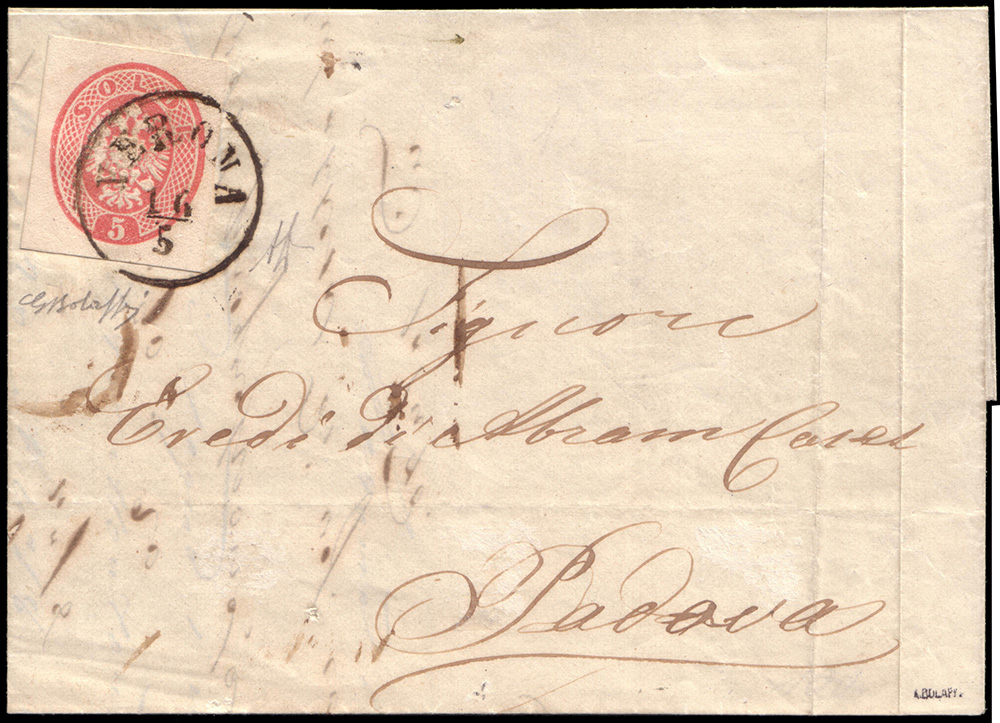 SOLDI
5
VERONA
16
5
GBolaffi
Signore
Eredi di Abram
Padova
A.BOLAFFI.